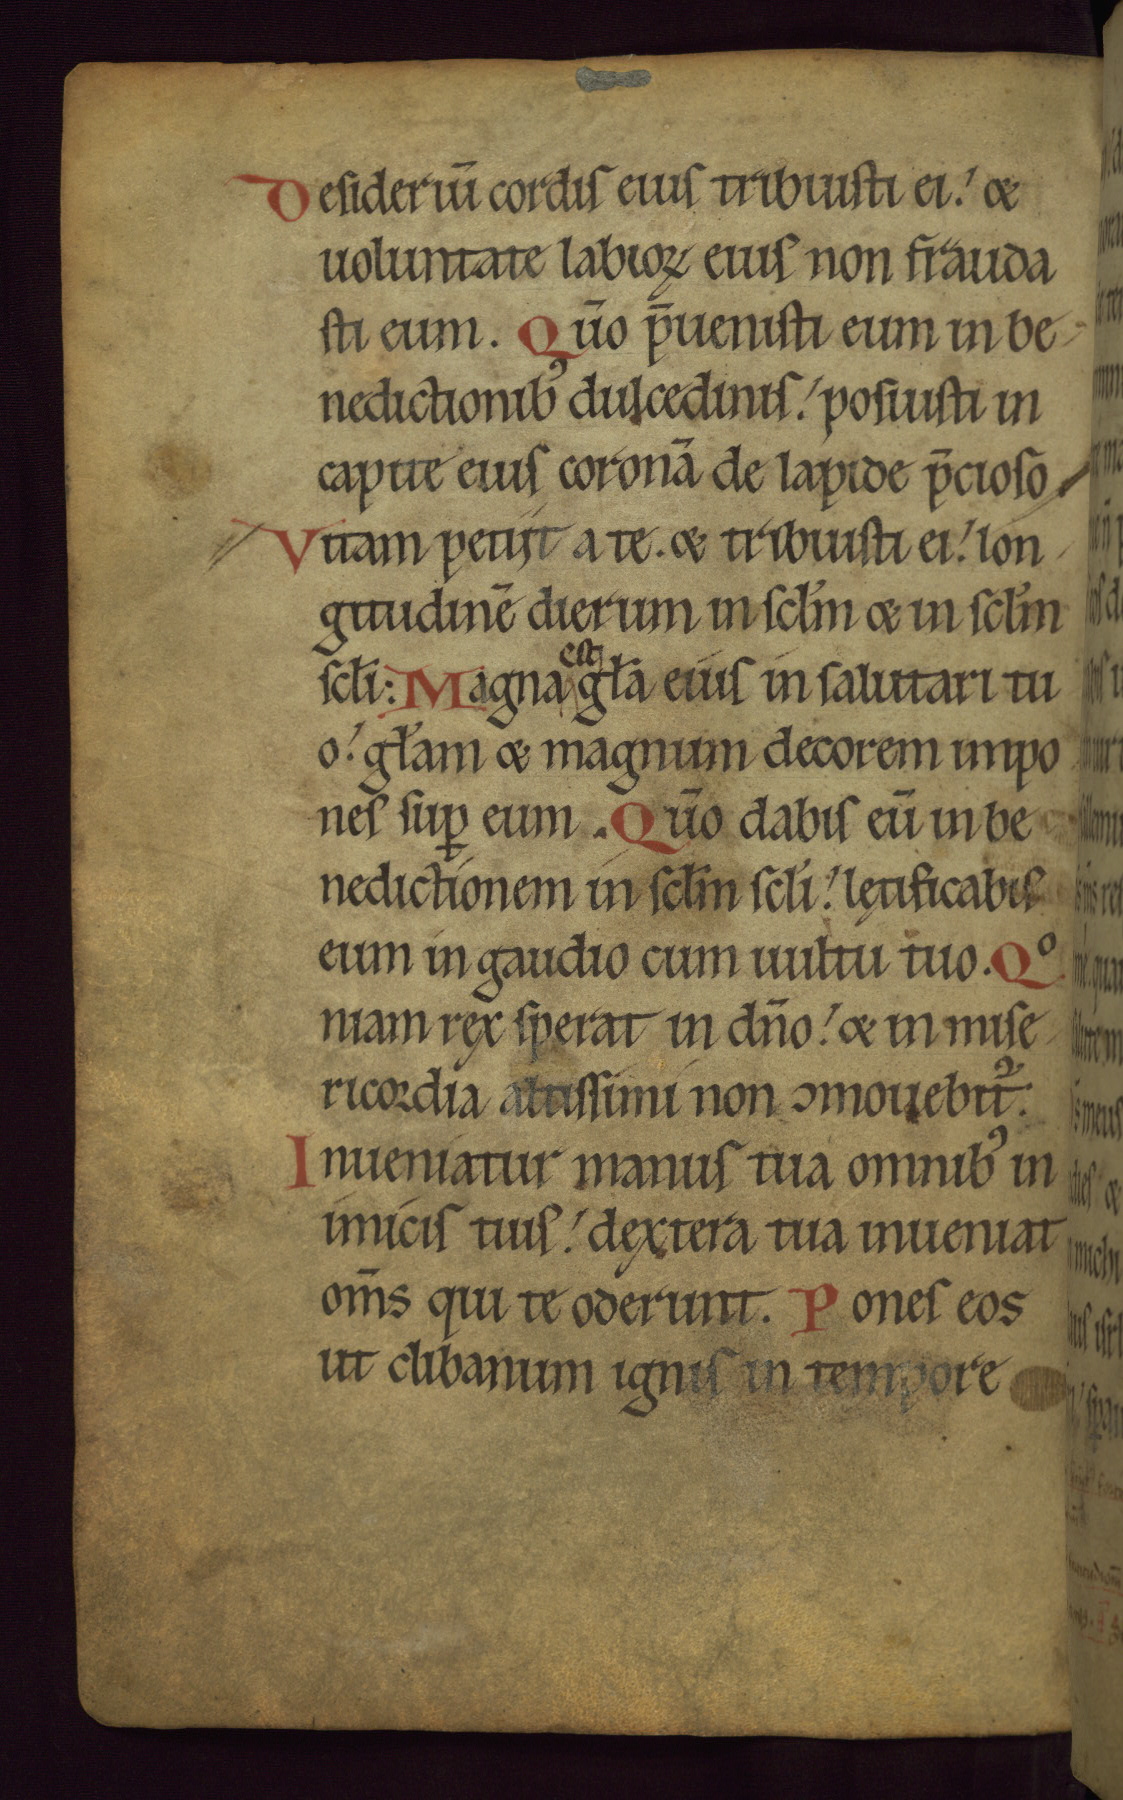 Desideriū cordis eius tribuisti ei. & 
uoluntate labioꝝ eius non frauda
sti eum. Qūo p̄uenisti eum in be-
nedictionib; dulcedinis. posuisti in
capite eius coronā de lapide p̄cioso
Vitam petiit a te. & tribuisti ei. lon
gitudinē dierum in sctm̄ & in sctm̄
scłi: Magna est gła eius in salutari tu
o. głam & magnum decorem impo
nes sup̱ eum. Qūo dabis eū in be
nedictionem in scłm scłi. lętificabis
eum in gaudio cum uultu tuo. Qº
niam rex sperat in dn̄o. & in mise
ricordia altissimi non ɔmouebit᷑.
Inueniatur manus tua omnib; in
imicis tuis. dextera tua inueniat
om̄s qui te oderunt. Pones eos
ut clibanum ignis in tempore